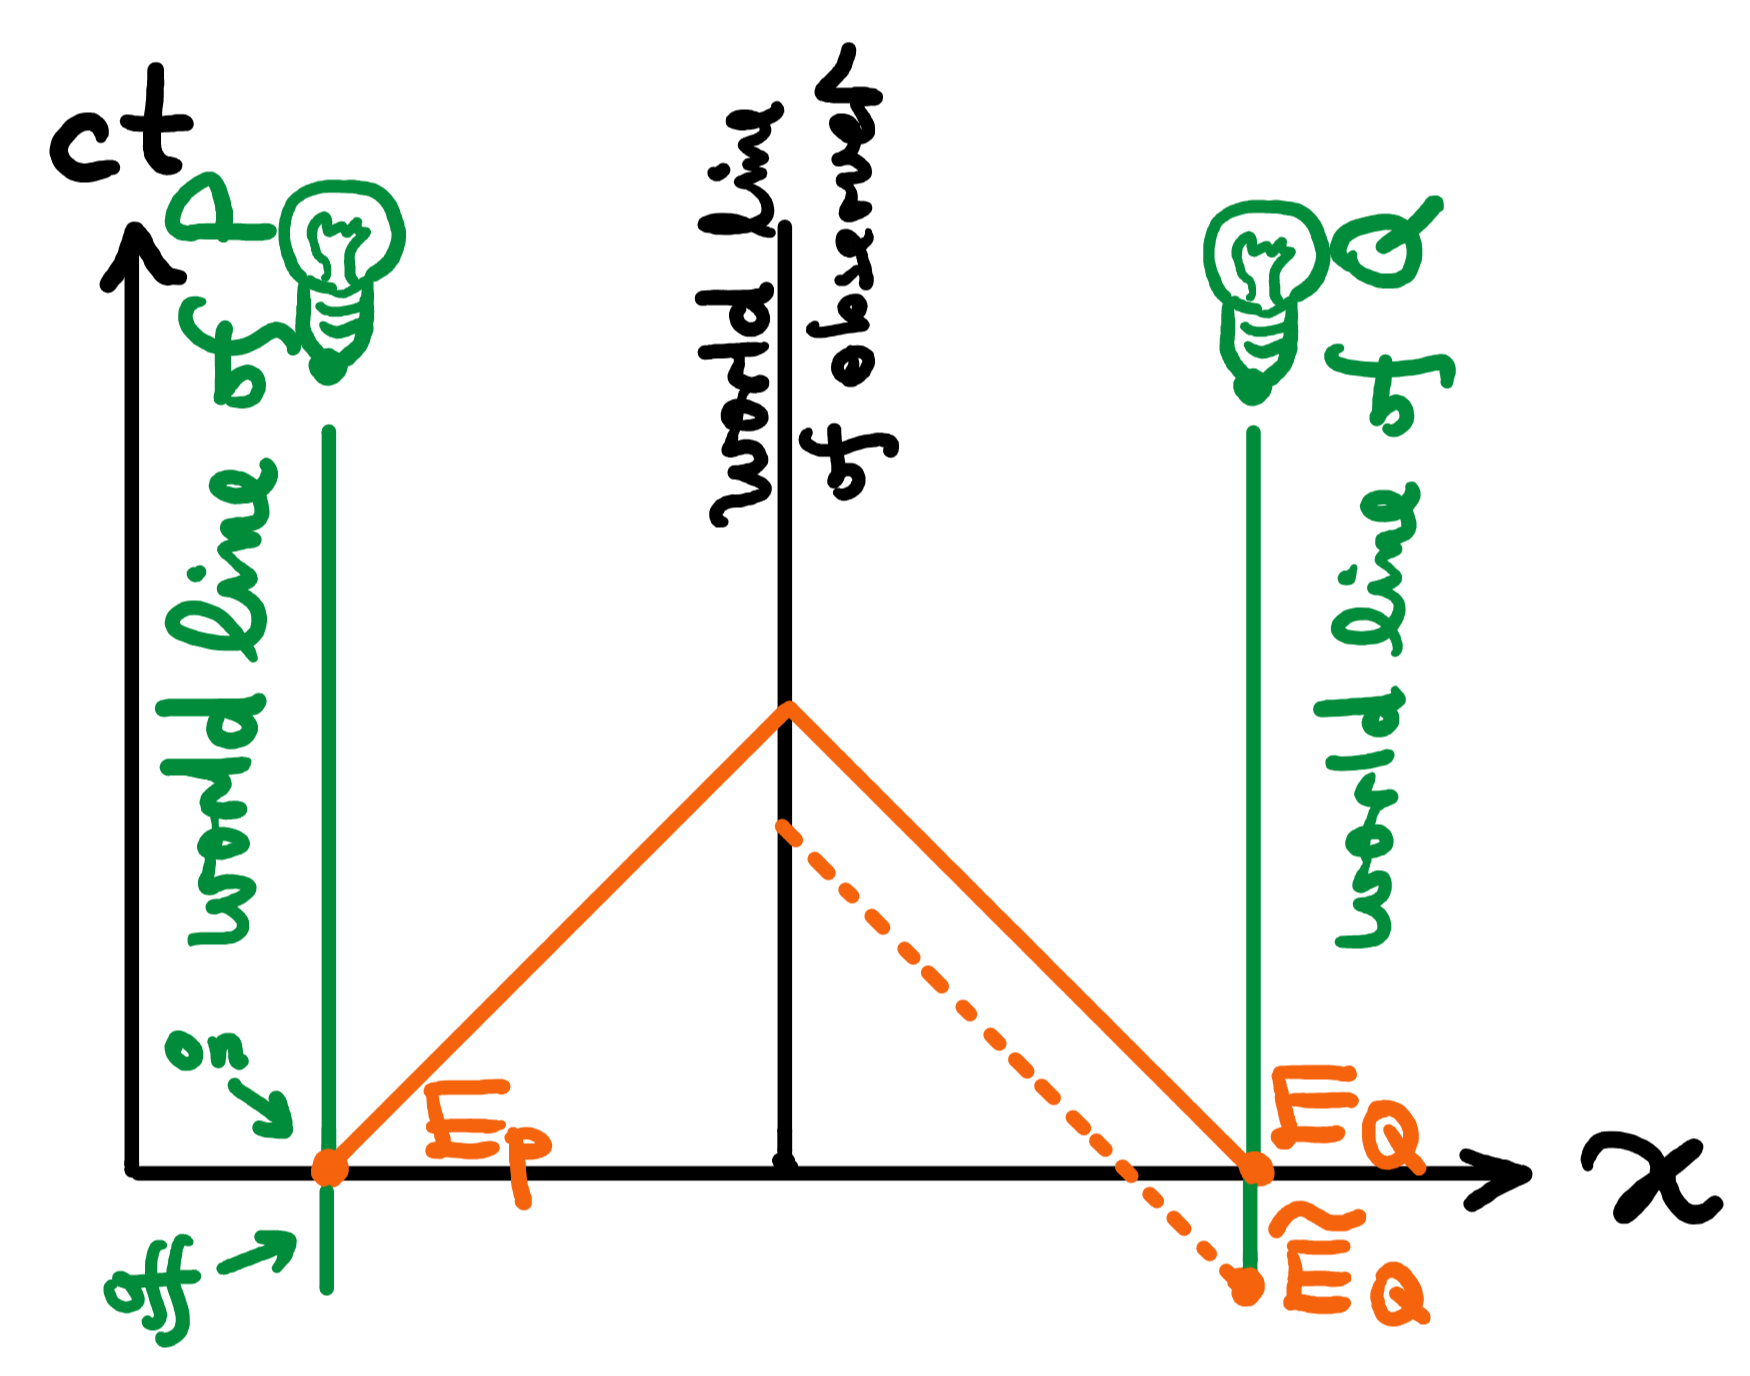 ct
world line of P
world line
of observer
world line of Q
on
off
E_P
E_Q
Ẽ_Q
x